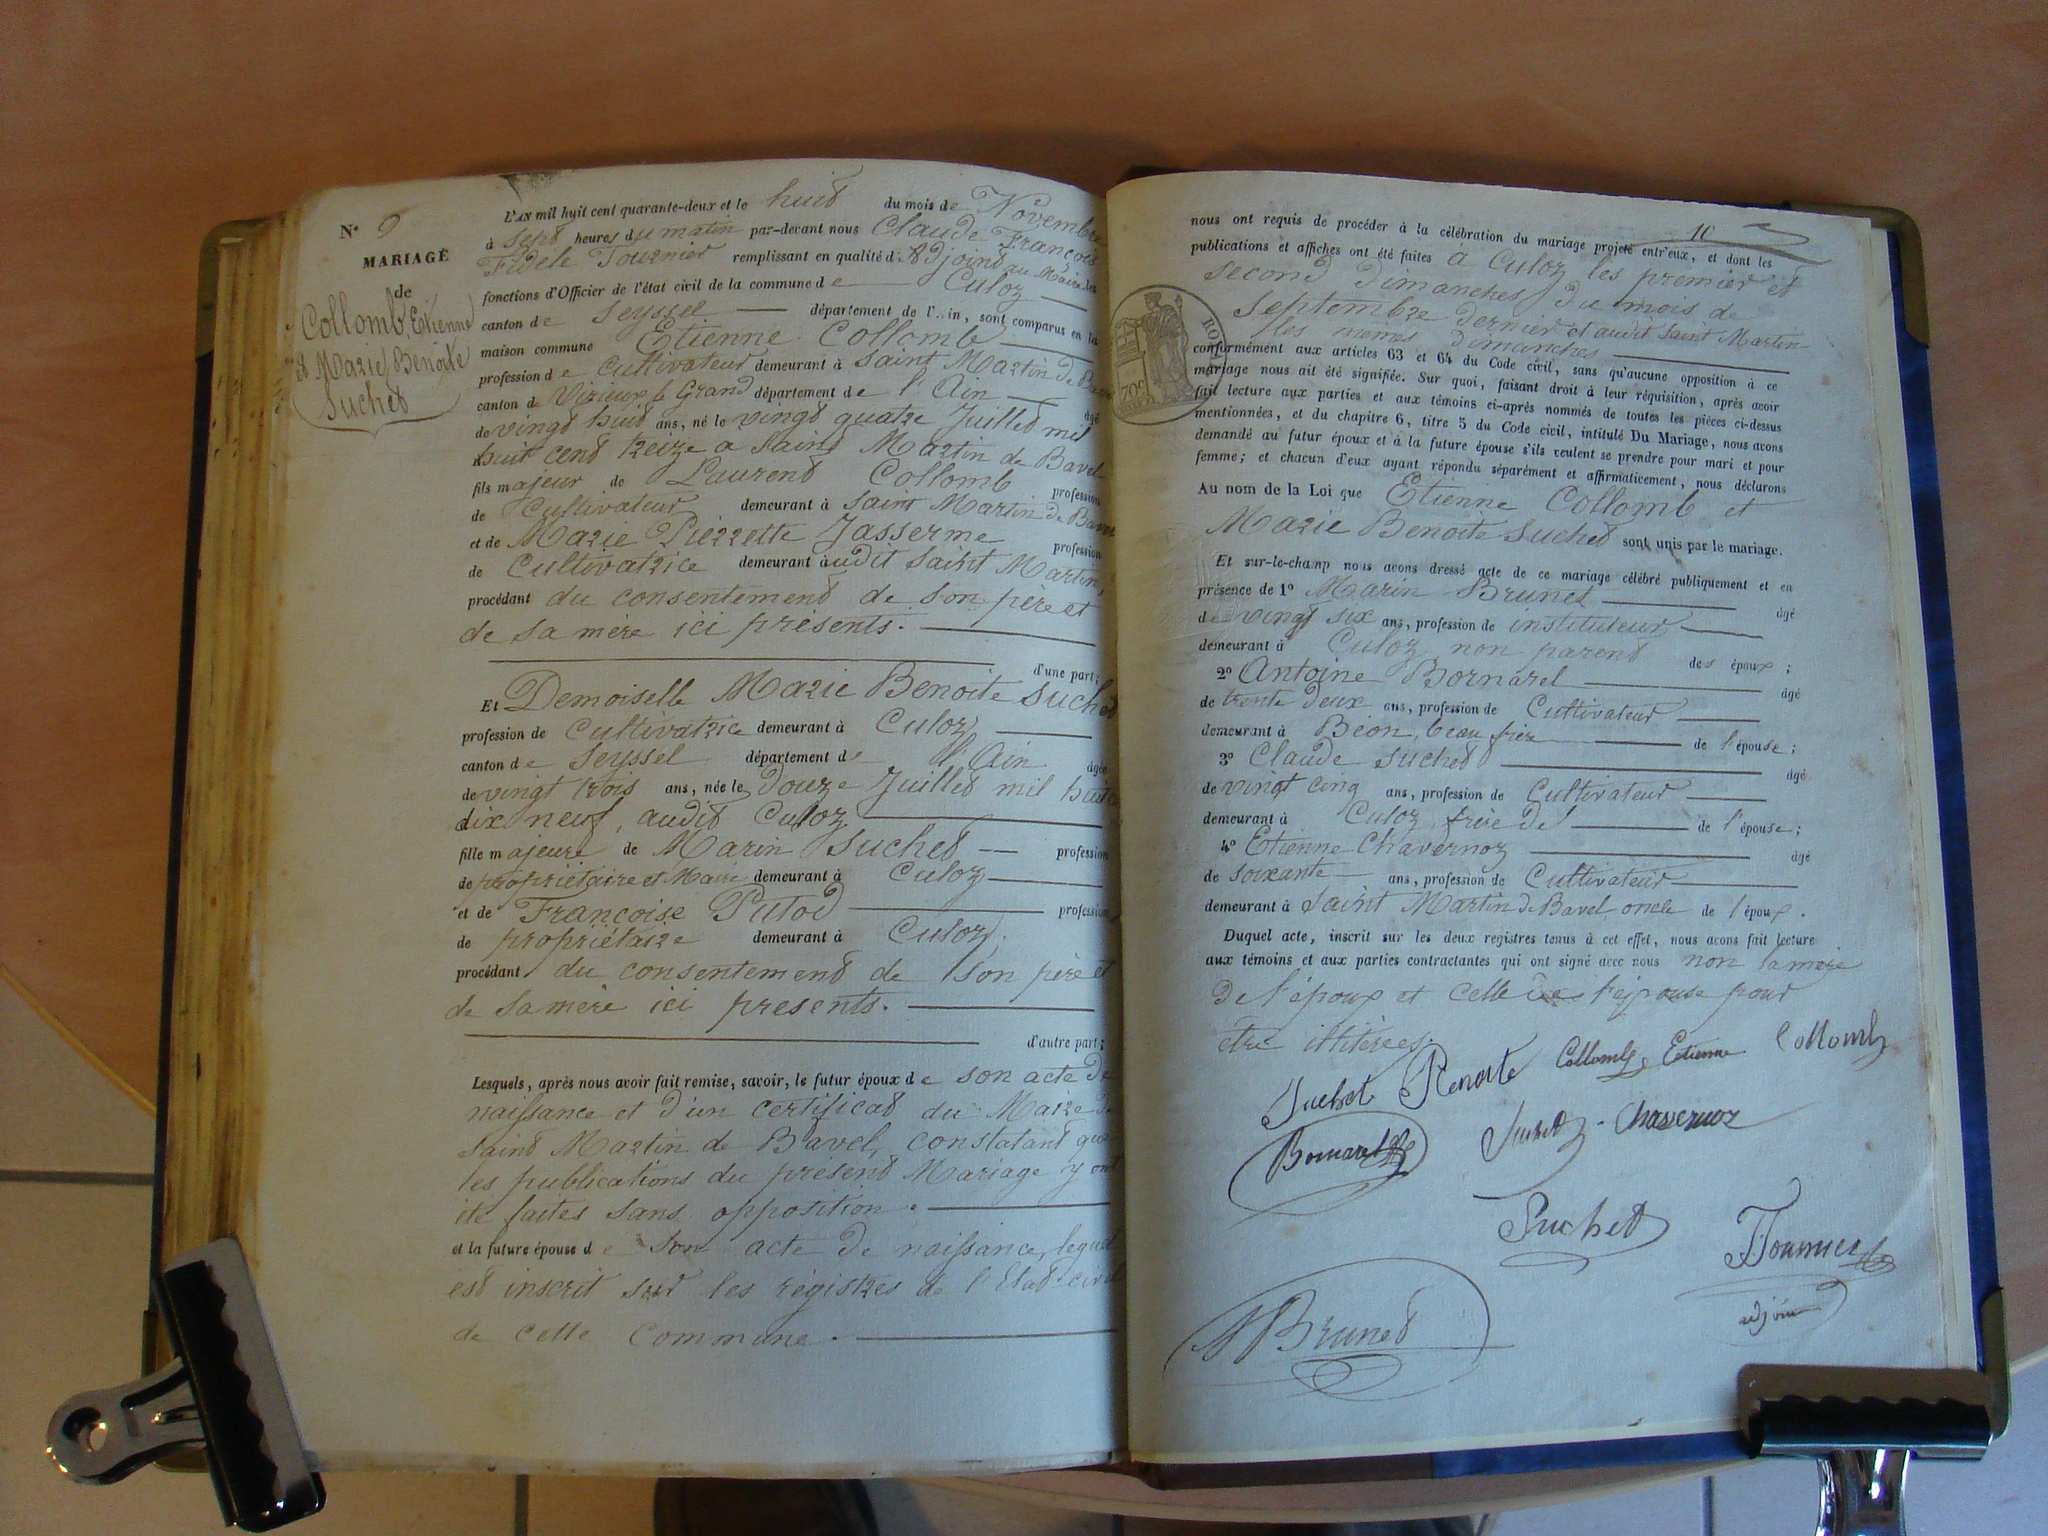 N° 9
MARIAGE
de
Collomb, Etienne
et Marie Benoite
Suchet
L'AN mil huit cent quarante-deux et le huit du mois de Novembre
à sept heures du matin par-devant nous Claude François
Fidele Tournier remplissant en qualité d'Adjoint au Maire les
fonctions d'Officier de l'état civil de la commune de Culoz
canton de Seyssel département de l'Ain, sont comparus en la
maison commune Etienne Collomb
profession de cultivateur demeurant à Saint Martin de Bavel
canton de Virieux le Grand département de l'Ain âgé
de vingt huit ans, né le vingt quatre Juillet mil
huit cent treize a Saint Martin de Bavel
fils majeur de Laurent Collomb profession
de Cultivateur demeurant à Saint Martin de Bavel
et de Marie Pierrette Jasserme profession
de Cultivatrice demeurant audit Saint Martin,
procédant du consentement de son père et
de sa mère ici présents.
d'une part;
Et Demoiselle Marie Benoite Suchet
profession de Cultivatrice demeurant à Culoz
canton de Seyssel département de l'Ain âgée
de vingt trois ans, née le Douze Juillet mil huit c
dix neuf, audit Culoz
fille majeure de Marin Suchet profession
de propriétaire et Maire demeurant à Culoz
et de Françoise Putod profession
de propriétaire demeurant à Culoz.
procédant du consentement de son père et
de sa mère ici présents.
d'autre part;
Lesquels, après nous avoir fait remise, savoir, le futur époux de son acte de
naissance et d'un certificat du Maire de
Saint Martin de Bavel, constatant que
les publications du présent Mariage y ont
été faites sans opposition.
et la future épouse de son acte de naissance, lequel
est inscrit sur les régistres de l'Etat-civil
de cette Commune.
10
nous ont requis de procéder à la célébration du mariage projeté entr'eux, et dont les
publications et affiches ont été faites à Culoz les premier et
second Dimanches du mois de
Septembre dernier et audit Saint Martin
les mêmes Dimanches
ROYAL
70c
conformément aux articles 63 et 64 du Code civil, sans qu'aucune opposition à ce
mariage nous ait été signifiée. Sur quoi, faisant droit à leur réquisition, après avoir
fait lecture aux parties et aux témoins ci-après nommés de toutes les pièces ci-dessus
mentionnées, et du chapitre 6, titre 5 du Code civil, intitulé Du Mariage, nous avons
demandé au futur époux et à la future épouse s'ils veulent se prendre pour mari et pour
femme; et chacun d'eux ayant répondu séparément et affirmativement, nous déclarons
Au nom de la Loi que Etienne Collomb et
Marie Benoite Suchet sont unis par le mariage.
Et sur-le-champ nous avons dressé acte de ce mariage célébré publiquement et en
présence de 1° Marin Brunet âgé
de vingt six ans, profession de instituteur
demeurant à Culoz non parent des époux;
2° Antoine Bornarel âgé
de trente deux ans, profession de Cultivateur
demeurant à Béon, beau frère de l'épouse;
3° Claude Suchet âgé
de vingt cinq ans, profession de Cultivateur
demeurant à Culoz, frère de l' de l'épouse;
4° Etienne Chavernoz âgé
de soixante ans, profession de Cultivateur
demeurant à Saint Martin de Bavel oncle de l'époux.
Duquel acte, inscrit sur les deux registres tenus à cet effet, nous avons fait lecture
aux témoins et aux parties contractantes qui ont signé avec nous non la mère
De l'époux et celle de l'épouse pour
être illitérées.
Suchet Benoite Collomb Etienne Collomb
Bornarel Suchet Chavernoz
Suchet Tournier
adjoint
M Brunet